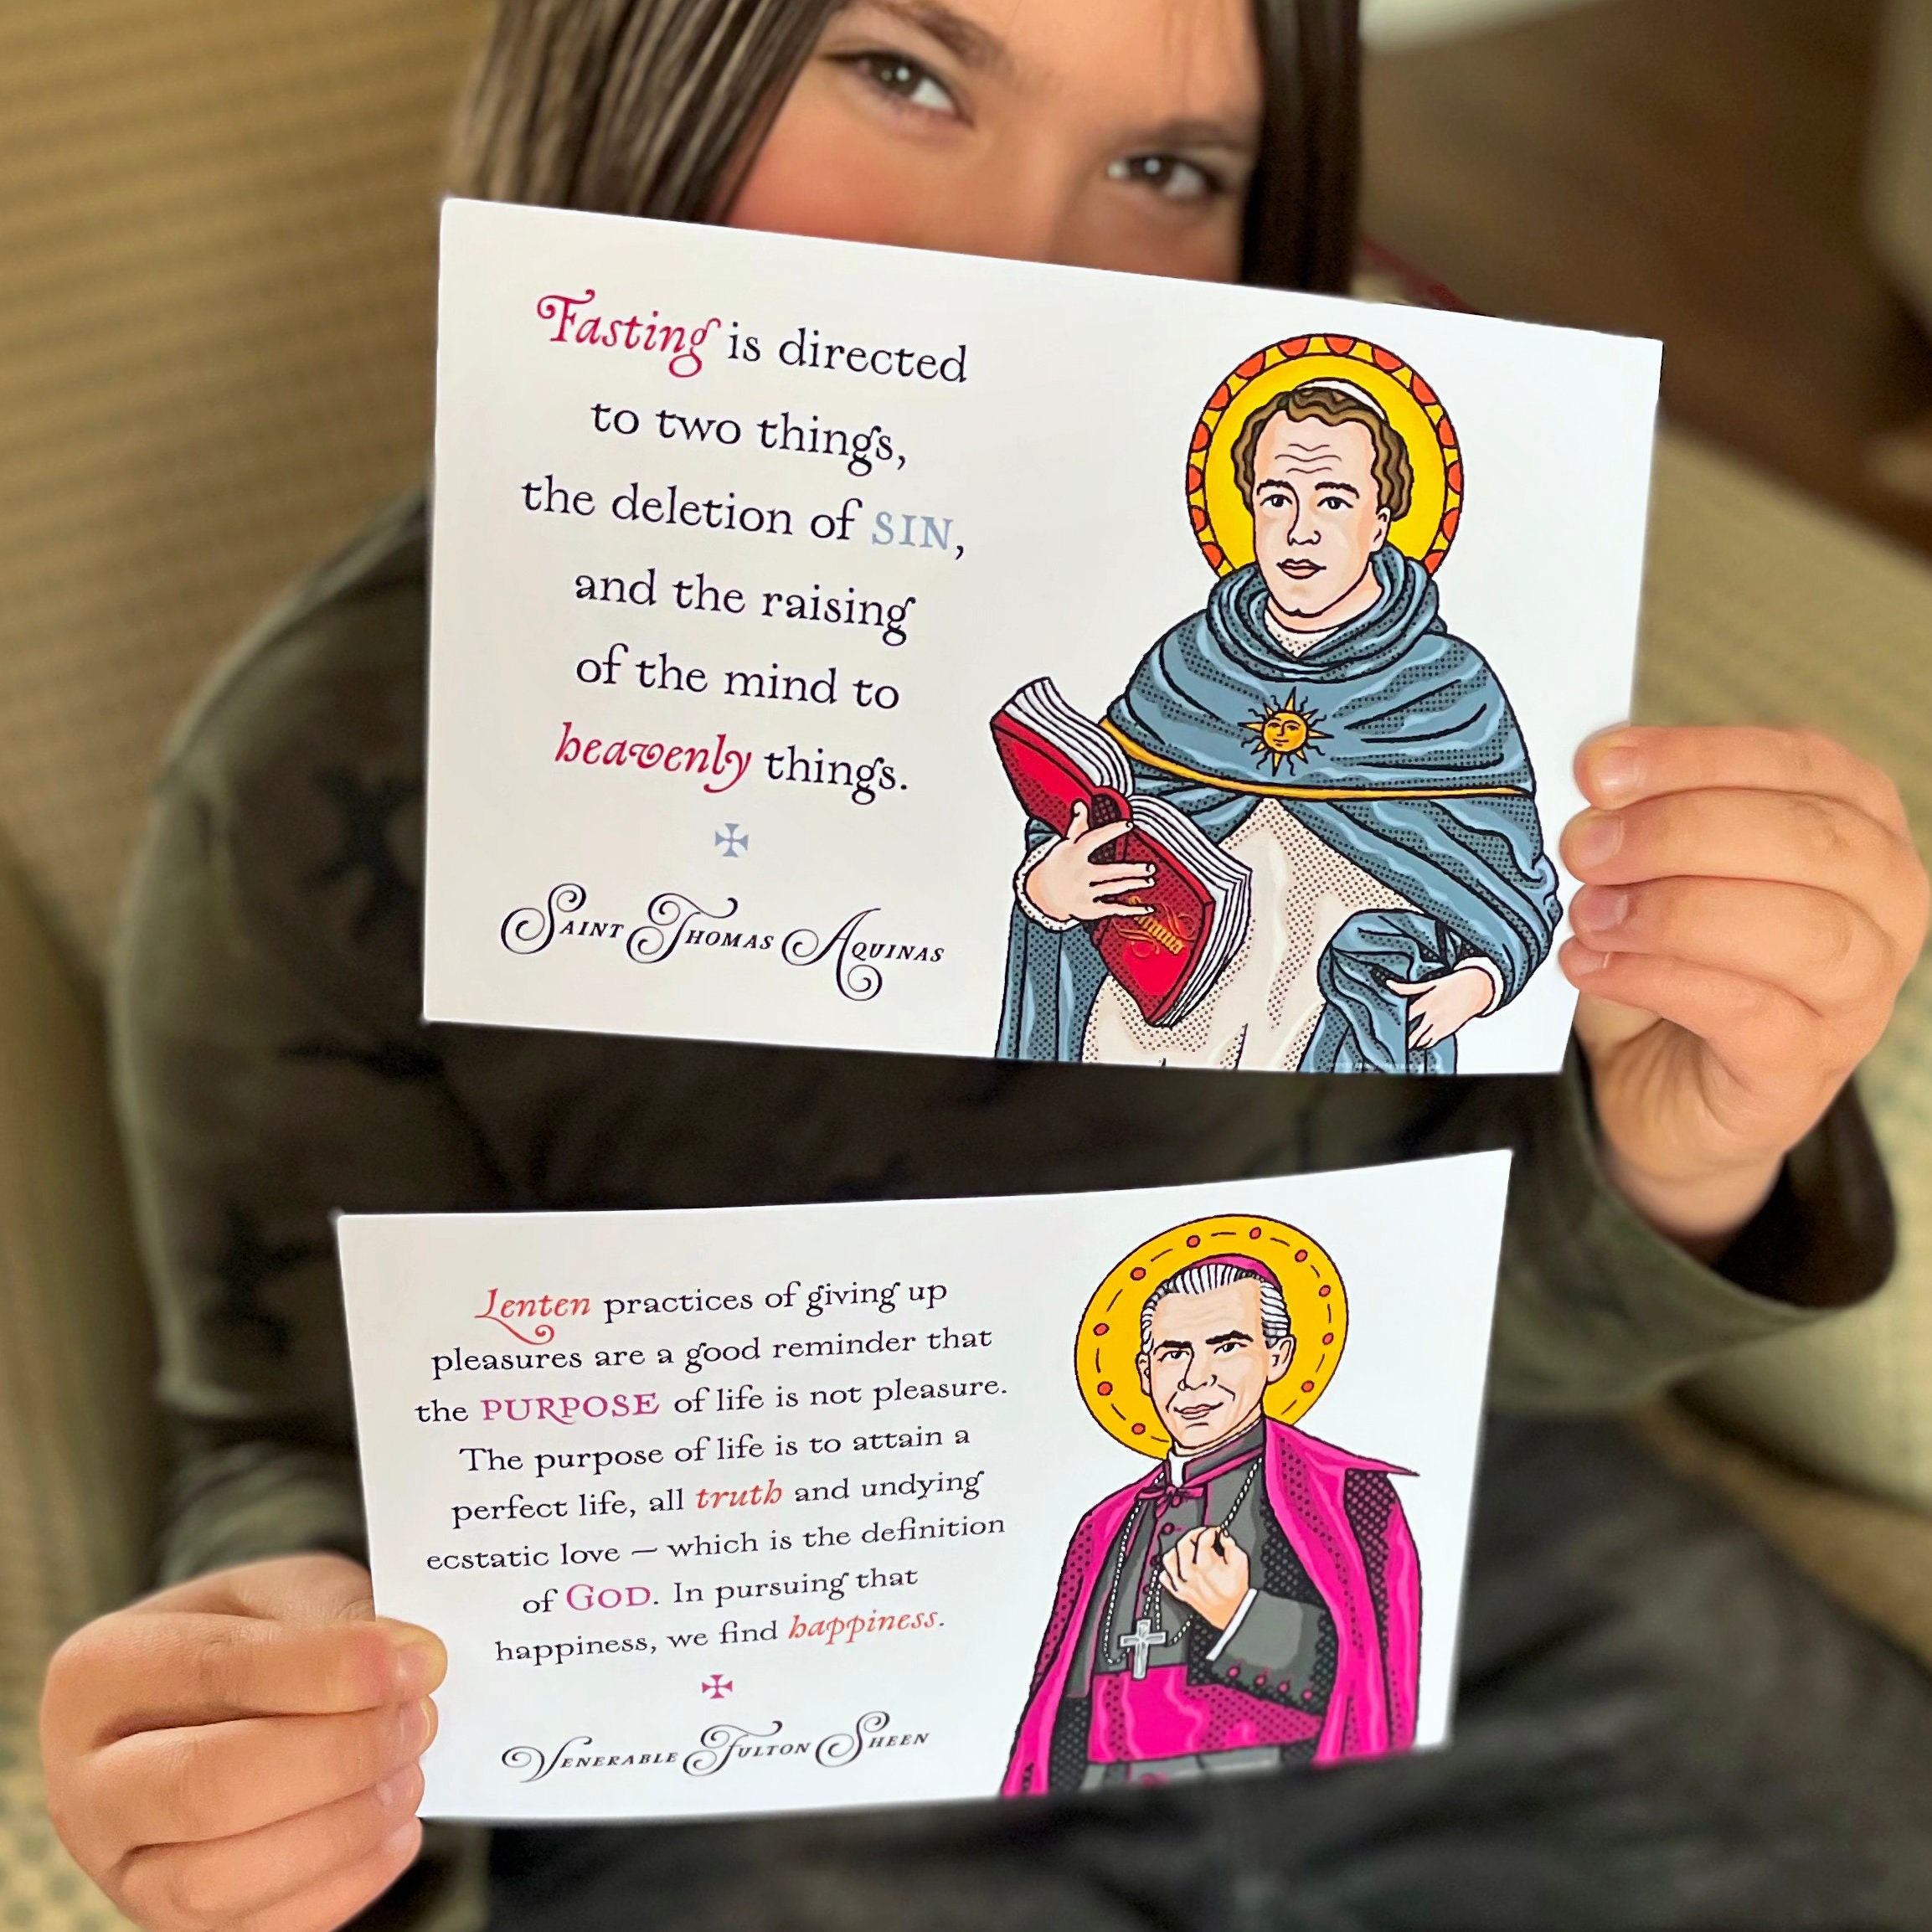 Fasting is directed
to two things,
the deletion of SIN,
and the raising
of the mind to
heavenly things.
SAINT THOMAS AQUINAS
Lenten practices of giving up
pleasures are a good reminder that
the PURPOSE of life is not pleasure.
The purpose of life is to attain a
perfect life, all truth and undying
ecstatic love — which is the definition
of GOD. In pursuing that
happiness, we find happiness.
VENERABLE FULTON SHEEN